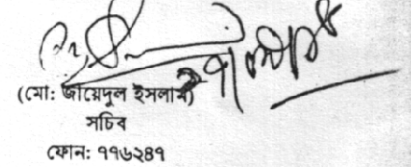 (মো: জায়েদুল ইসলাম)
সচিব
ফোন: ৭৭৬২৪৭